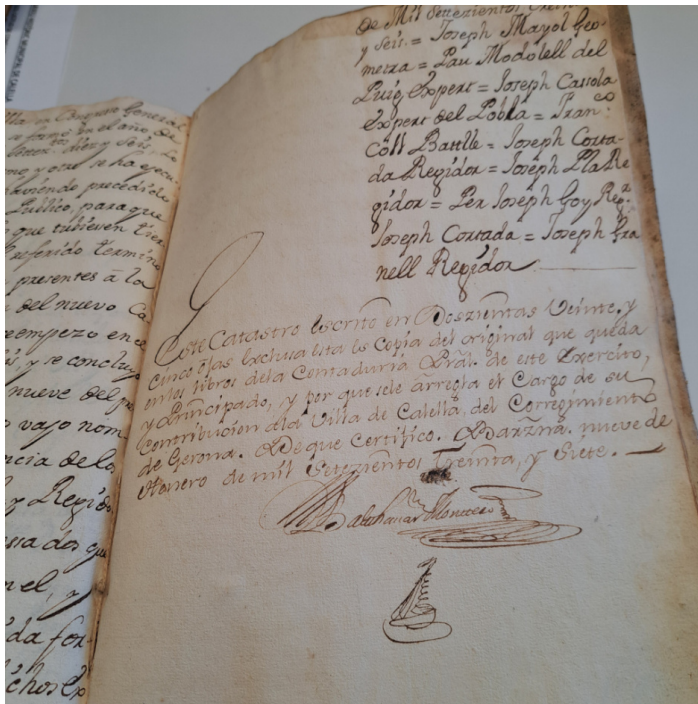 lla en Conquete General
se formò en el año de
setten.tos diez y seis. Lo
mo y otro se ha execu
haviendo precedido
Publico, para que
que tubiessen tier
referido termino
presentes â la
del nuevo Ca
se empezo en
y se concluye
nueve del
vajo nom
ncia de la
y Regid
essa dos qu
en el, y
da for-
chos Ex
de Mil Settezientos Treinta
y seis. = Joseph Mayol Geo-
metra = Pau Modolell del
Puig Expert = Joseph Cassola
Expert del Pobla = Fran.co
Còll Batlle = Joseph Corta-
da Regidor = Joseph Pla Re
gidor = Per Joseph Goy Reg.r
Joseph Cortada = Joseph Gra
nell Regidor
Este Catastro Escrito en Doszientas Veinte, y
cinco ojas Exclusa esta es Copia del original que queda
en los libros dela Contaduria Pral. de este Exercito,
y Principado, y por que sele arregla el Cargo de su
Contribucion ala Villa de Calella, del Corregimiento
de Gerona. De que Certifico. Barzna. nueve de
Henero de mil Setezientos Treinta, y Siete.
Balthasar Montero